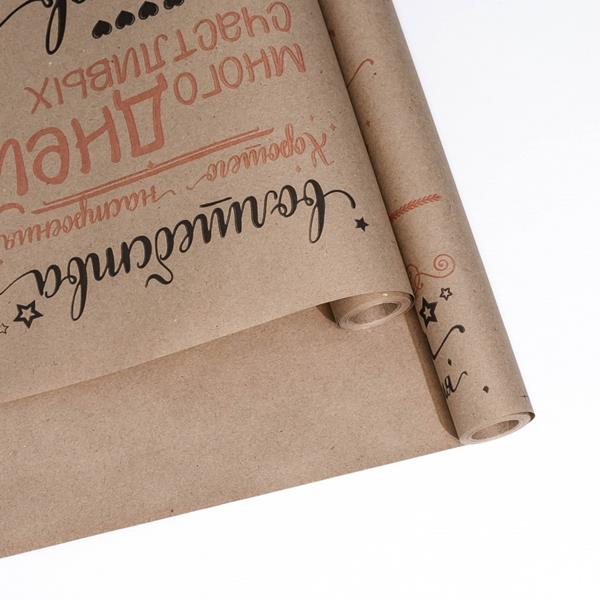 волшебства
Хорошего настроения
много Дней
счастливых